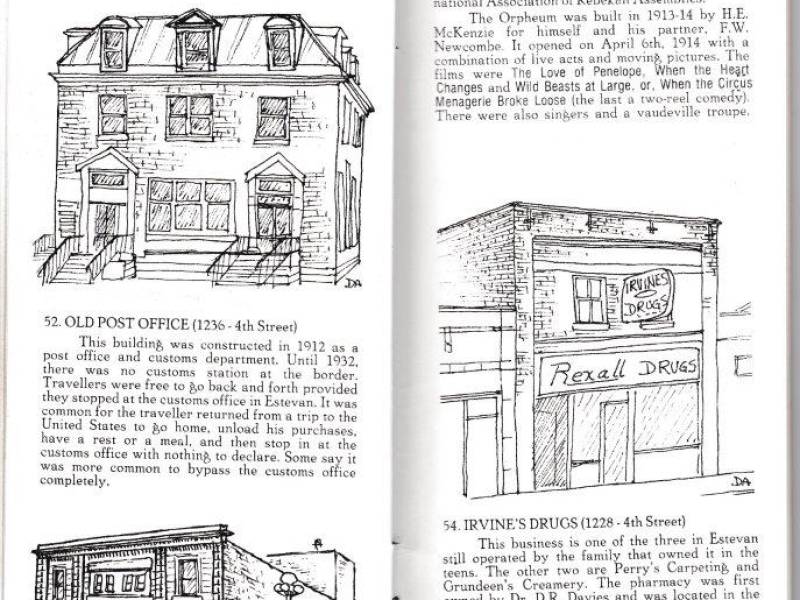 DA
52. OLD POST OFFICE (1236 - 4th Street)
This building was constructed in 1912 as a
post office and customs department. Until 1932,
there was no customs station at the border.
Travellers were free to go back and forth provided
they stopped at the customs office in Estevan. It was
common for the traveller returned from a trip to the
United States to go home, unload his purchases,
have a rest or a meal, and then stop in at the
customs office with nothing to declare. Some say it
was more common to bypass the customs office
completely.
national Association of Rebekah Assemblies.
The Orpheum was built in 1913-14 by H.E.
McKenzie for himself and his partner, F.W.
Newcombe. It opened on April 6th, 1914 with a
combination of live acts and moving pictures. The
films were The Love of Penelope, When the Heart
Changes and Wild Beasts at Large, or, When the Circus
Menagerie Broke Loose (the last a two-reel comedy).
There were also singers and a vaudeville troupe.
IRVINES
DRUGS
Rexall DRUGS
DA
54. IRVINE'S DRUGS (1228 - 4th Street)
This business is one of the three in Estevan
still operated by the family that owned it in the
teens. The other two are Perry's Carpeting and
Grundeen's Creamery. The pharmacy was first
owned by Dr. D.R. Davies and was located in the